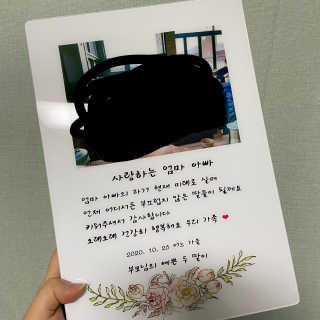 사랑하는 엄마 아빠
엄마 아빠의 과거 현재 미래로 살며
언제 어디서든 부끄럽지 않은 딸들이 될께요
키워주셔서 감사합니다
오래오래 건강히 행복해요 우리 가족 ❤
2020. 10. 25 어느 가을
부모님의 예쁜 두 딸이